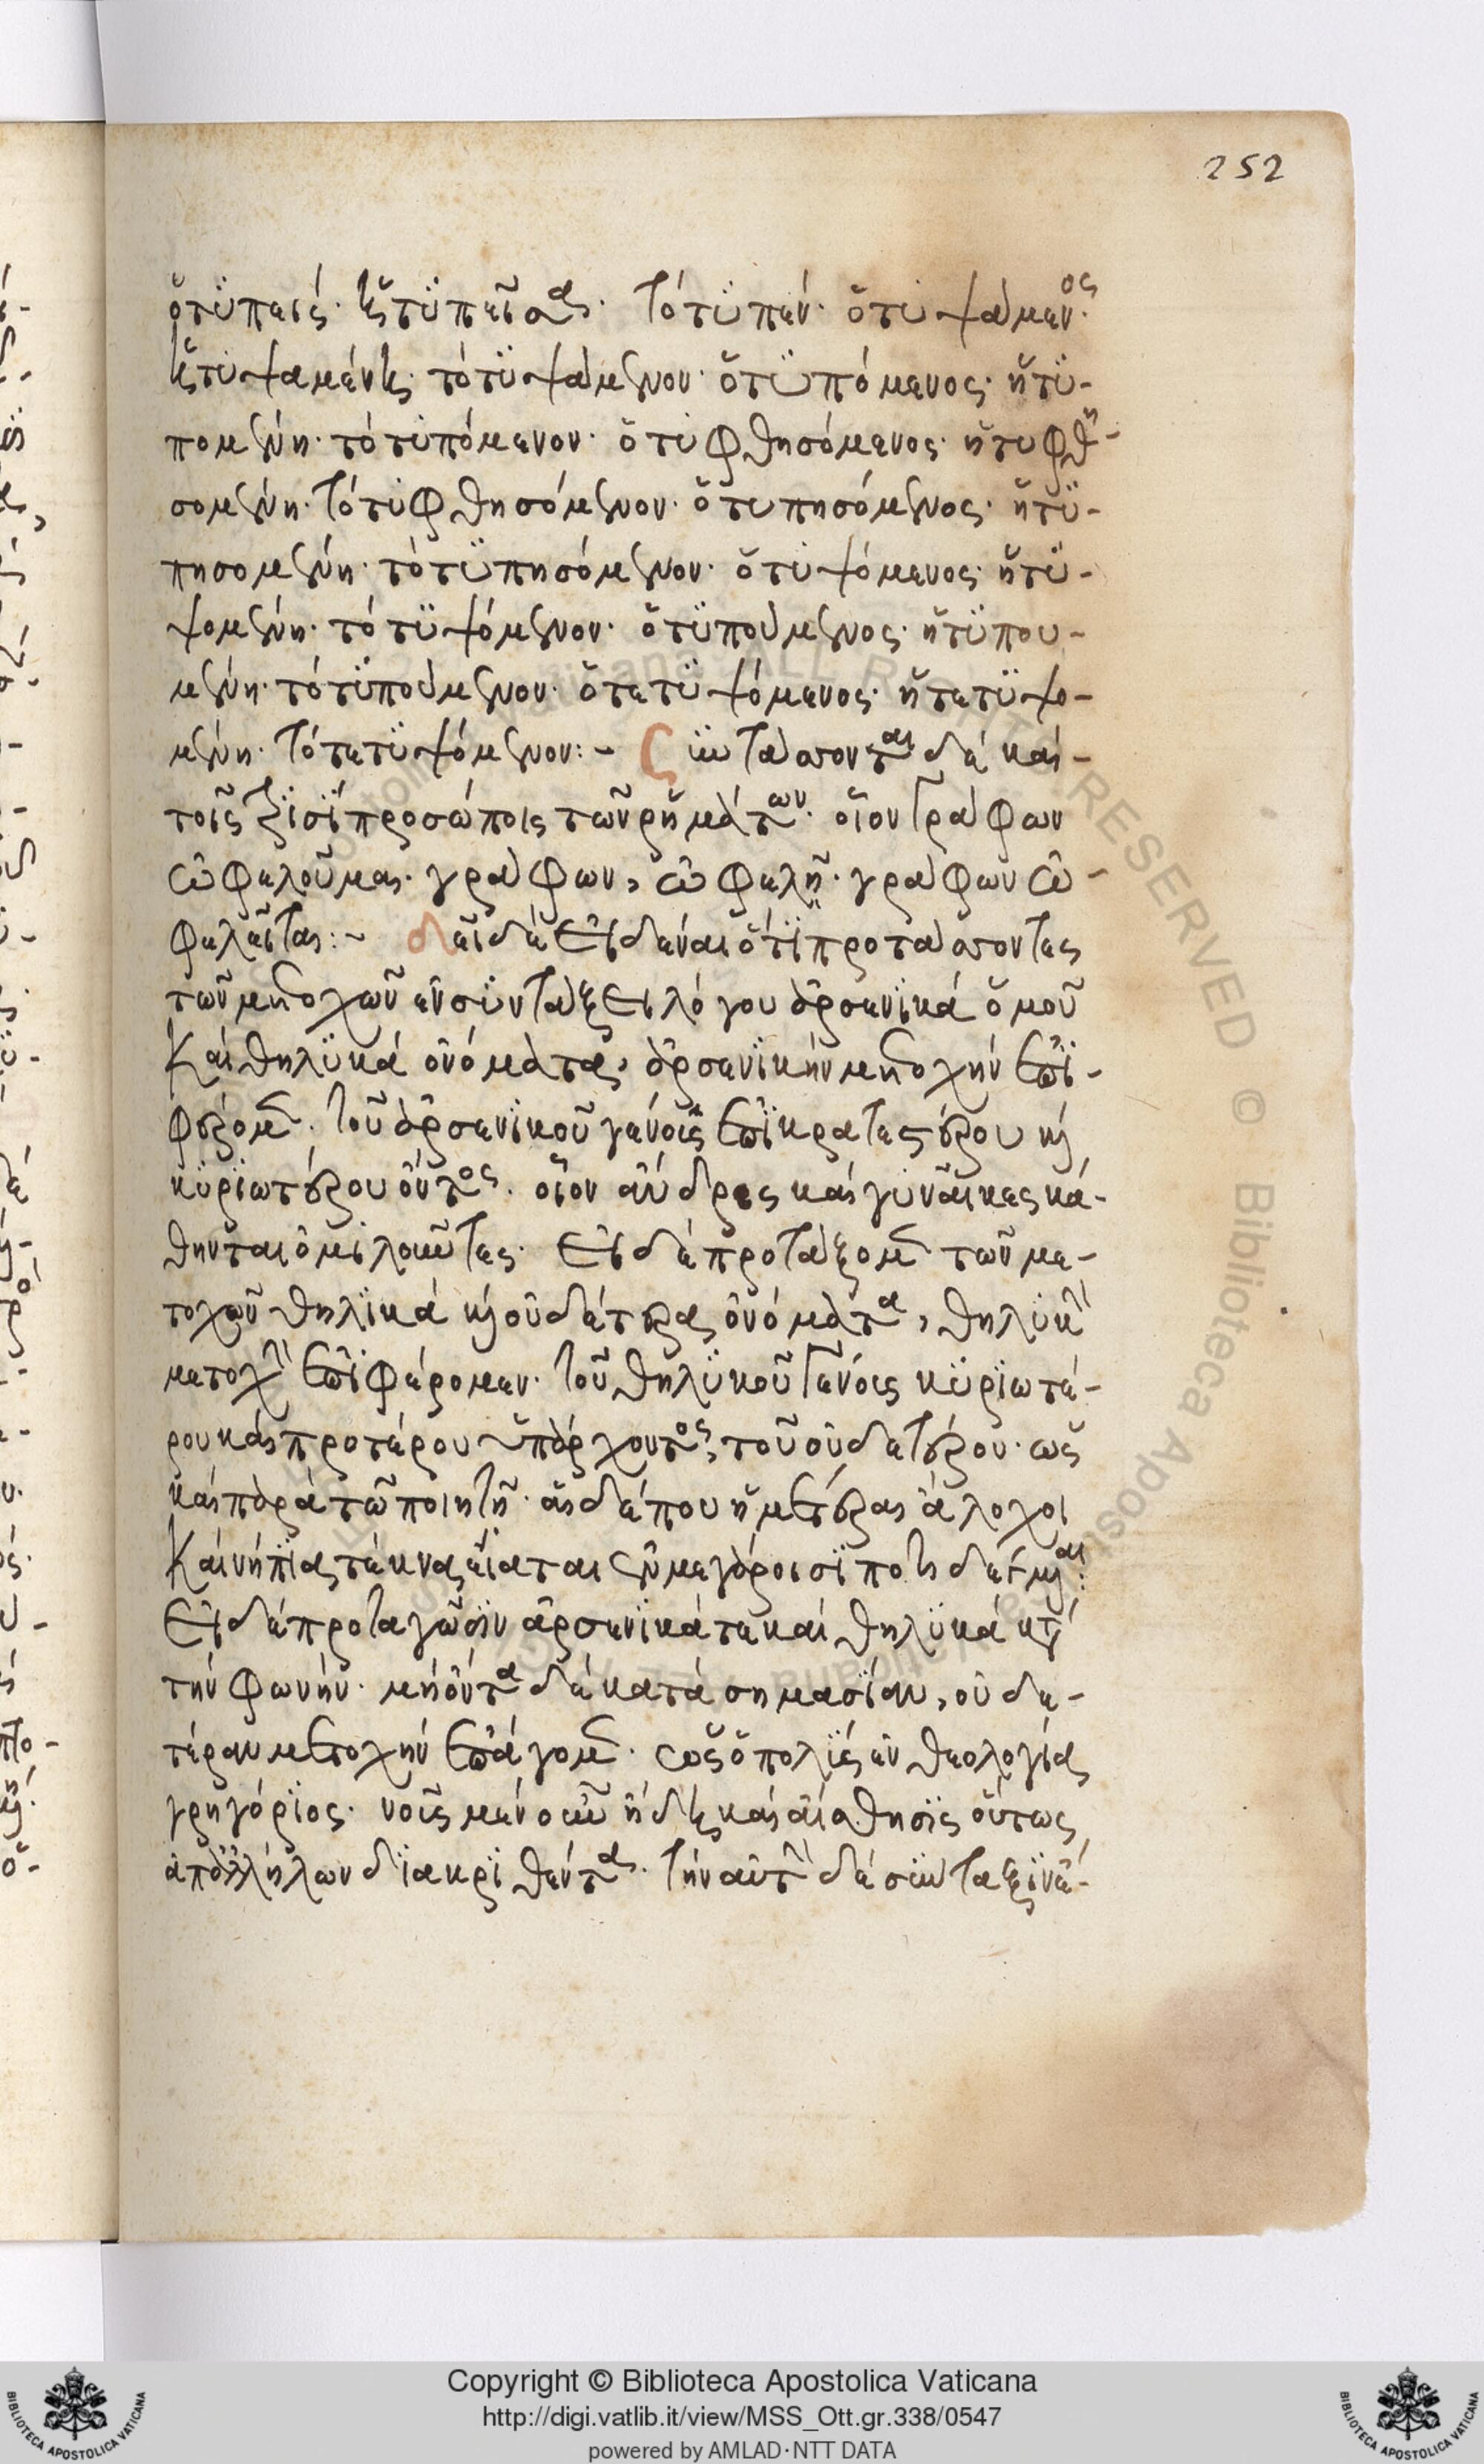 252
ὁ τυπείς· ἡ τυπεῖσα· τὸ τυπέν· ὁ τυψάμενος·
ἡ τυψαμένη· τὸ τυψάμενον· ὁ τυπόμενος· ἡ τυ-
πομένη· τὸ τυπόμενον· ὁ τυφθησόμενος· ἡ τυφθη-
σομένη· τὸ τυφθησόμενον· ὁ τυπησόμενος· ἡ τυ-
πησομένη· τὸ τυπησόμενον· ὁ τυψόμενος· ἡ τυ-
ψομένη· τὸ τυψόμενον· ὁ τυπούμενος· ἡ τυπου-
μένη· τὸ τυπούμενον· ὁ τετυψόμενος· ἡ τετυψο-
μένη· τὸ τετυψόμενον:~ Συντάσσονται δὲ καὶ
τοῖς τρισὶ προσώποις τῶν ῥημάτων· οἷον γράφων
ὠφελοῦμαι· γράφων, ὠφελῇ· γράφων ὠ-
φελεῖται:~ δεῖ δὲ εἰδέναι ὅτι προτάσσοντες
τῶν μετοχῶν ἐν συντάξει λόγου ἀρσενικά ὁμοῦ
καὶ θηλυκά ὀνόματα, ἀρσενικήν μετοχήν ἐπι-
φέρομεν· τοῦ ἀρσενικοῦ γένους ἐπικρατεστέρου καὶ
κυριωτέρου ὄντος· οἷον ἄνδρες καὶ γυναῖκες κά-
θηνται ὁμιλοῦντες· εἰ δὲ προτάξομεν τῶν με-
τοχῶν θηλικά καὶ οὐδέτερα ὀνόματα, θηλυκὴν
μετοχὴν ἐπιφέρομεν· τοῦ θηλυκοῦ γένους κυριωτέ-
ρου καὶ προτέρου ὑπάρχοντος, τοῦ οὐδετέρου· ὡς
καὶ παρὰ τῷ ποιητῇ· αἱ δέ που ἡμέτεραι ἄλοχοι
καὶ νήπια τέκνα εἵαται ἐν μεγάροισι ποτιδέγμεναι:
Εἰ δὲ προταγῶσιν ἀρσενικά τε καὶ θηλυκά κατὰ
τὴν φωνήν· μὴ ὄντα δὲ κατὰ σημασίαν, οὐδε-
τέραν μετοχήν ἐπάγομεν· ὡς ὁ πολὺς ἐν θεολογίᾳ
γρηγόριος· νοῦς μὲν οὖν ἤδη καὶ αἴσθησις οὕτως
ἀπ' ἀλλήλων διακριθέντα· τὴν αὐτὴν δὲ σύνταξιν ἐ-
Copyright © Biblioteca Apostolica Vaticana
http://digi.vatlib.it/view/MSS_Ott.gr.338/0547
powered by AMLAD·NTT DATA